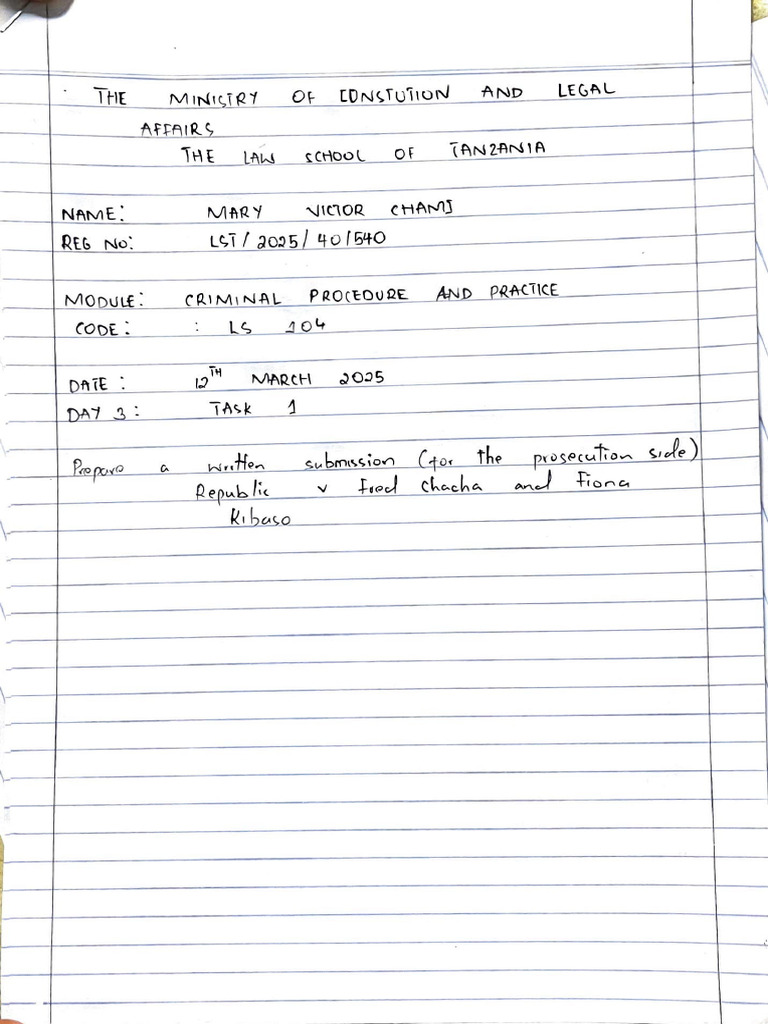 THE MINISTRY OF CONSTUTION AND LEGAL
AFFAIRS
THE LAW SCHOOL OF TANZANIA
NAME: MARY VICTOR CHAMI
REG NO: LST/2025/40/540
MODULE: CRIMINAL PROCEDURE AND PRACTICE
CODE: : LS 104
DATE: 12TH MARCH 2025
DAY 3: TASK 1
Prepare a written submission (for the prosecution side)
Republic v Fred chacha and Fiona
Kibaso